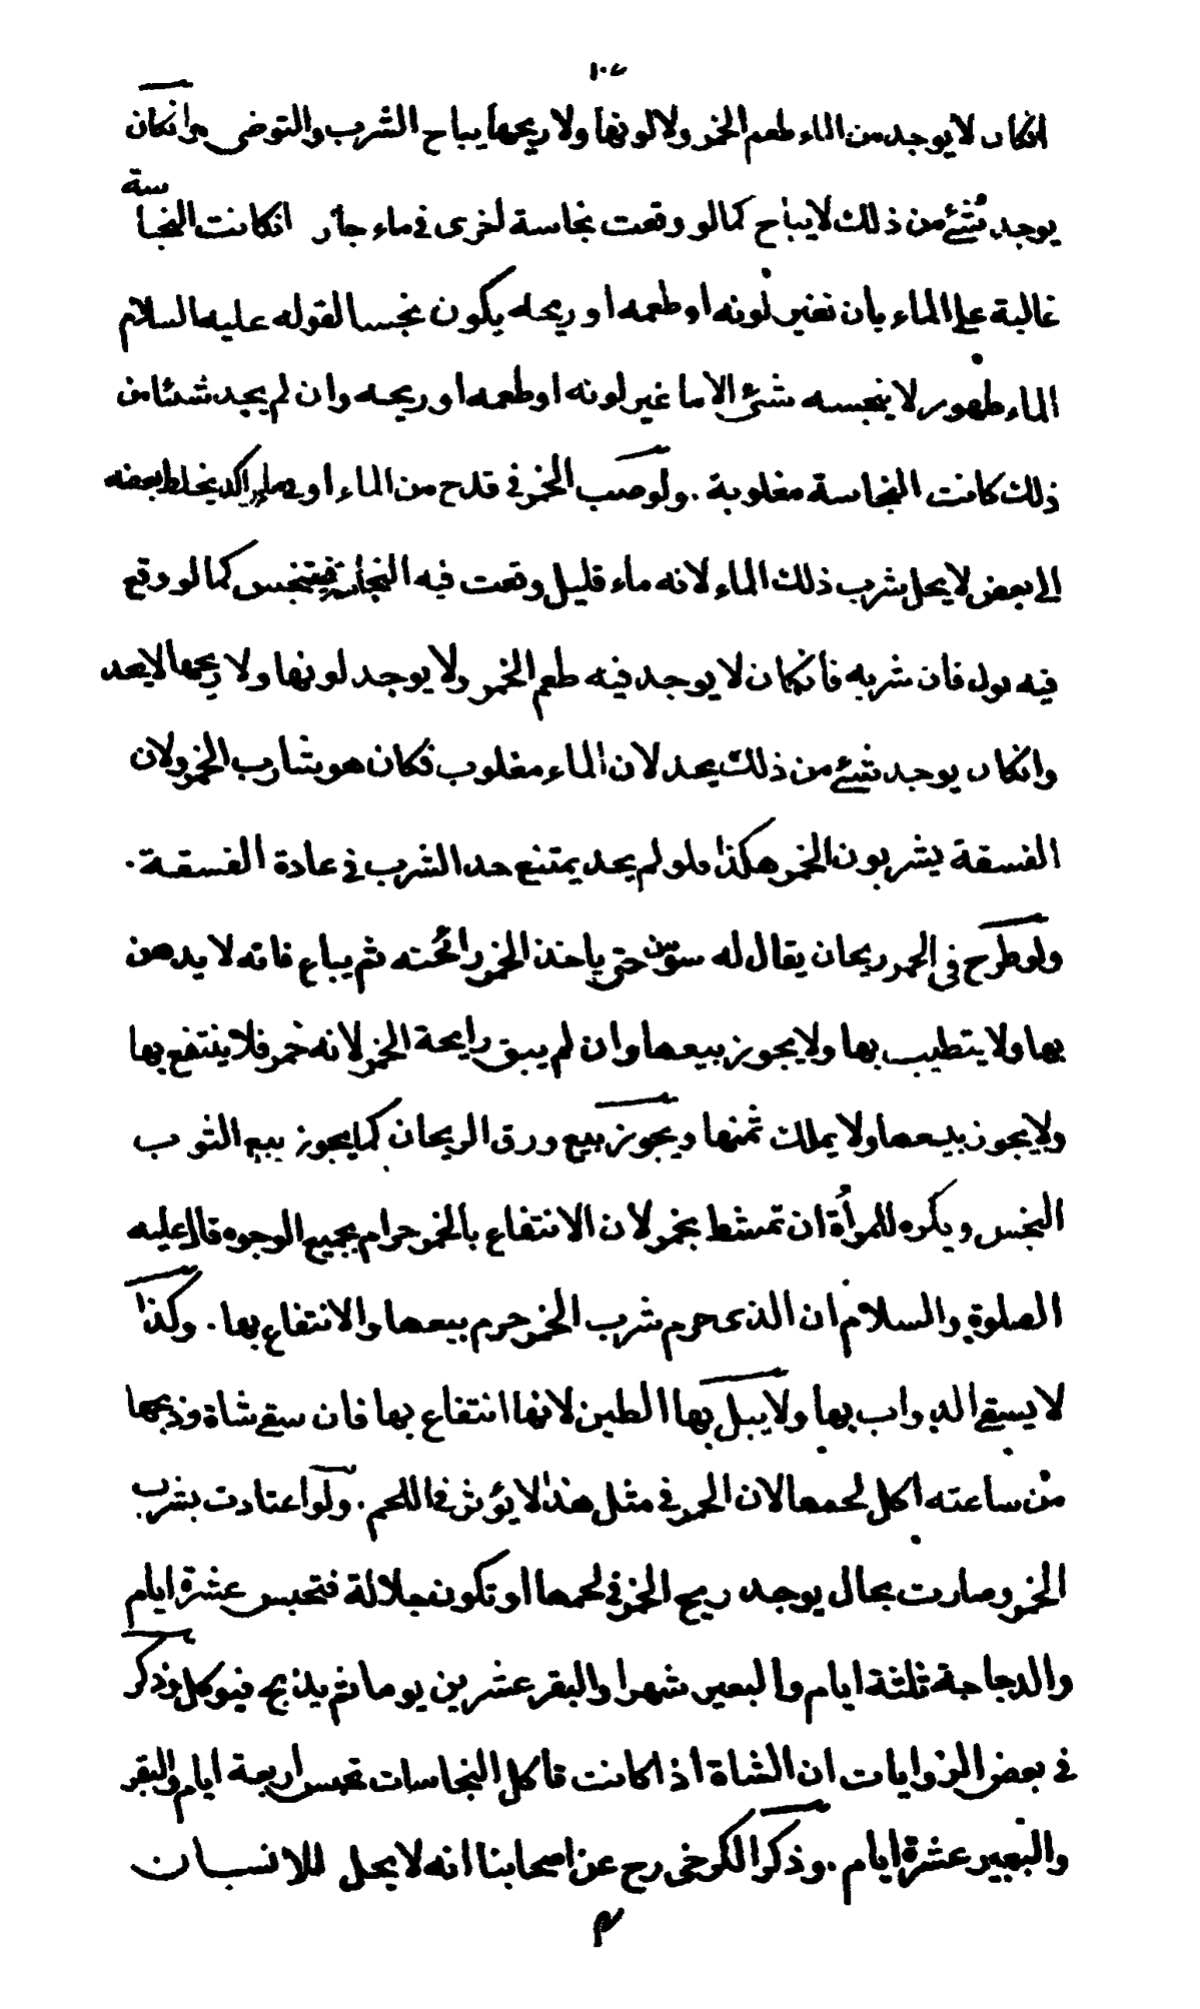 ١٠٧
انكان لا يوجد من الماء طعم الخمر ولا لونها ولا ريحها يباح الشرب والتوضى به وانكان
يوجد شئ من ذلك لا يباح كما لو وقعت نجاسة اخرى فى ماء جار انكانت النجاسة
غالبة على الماء بان تغير لونه او طعمه او ريحه يكون نجسا لقوله عليه السلام
الماء طهور لا ينجسه شئ الا ما غير لونه او طعمه او ريحه وان لم يجد شئا من
ذلك كانت النجاسة مغلوبة . ولو صب الخمر فى قدح من الماء او فى ماء راكد يخلط بعضه
الى بعض لا يحل شرب ذلك الماء لانه ماء قليل وقعت فيه النجاسة فيتنجس كما لو وقع
فيه بول فان شربه فانكان لا يوجد فيه طعم الخمر ولا يوجد لونها ولا ريحها لا يحد
وانكان يوجد شئ من ذلك يحد لان الماء مغلوب فكان هو شارب الخمر ولان
الفسقة يشربون الخمر هكذا ولو لم يحد يمتنع حد الشرب فى عادة الفسقة .
ولو طرح فى الخمر ريحان يقال له سوسن حتى ياخذ الخمر رائحته ثم يباع فانه لا يدهن
بها ولا يتطيب بها ولا يجوز بيعها وان لم يبق رايحة الخمر لانه خمر فلا ينتفع بها
ولا يجوز بيعها ولا يملك ثمنها ويجوز بيع ورق الريحان كما يجوز بيع الثوب
النجس ويكره للمرأة ان تمشط بخمر لان الانتفاع بالخمر حرام بجميع الوجوه قال عليه
الصلوة والسلام ان الذى حرم شرب الخمر حرم بيعها والانتفاع بها . وكذا
لا يسقى الدواب بها ولا يبل بها الطين لانها انتفاع بها فان سقى شاة وذبحها
من ساعته اكل لحمها لان الخمر فى مثل هذا لا يؤثر فى اللحم . ولو اعتادت بشرب
الخمر وصارت بحال يوجد ريح الخمر فى لحمها او تكون جلالة فتحبس عشرة ايام
والدجاجة ثلثة ايام والبعير شهرا والبقر عشرين يوما ثم يذبح فيوكل وذكر
فى بعض الروايات ان الشاة اذا كانت تاكل النجاسات تحبس اربعة ايام والبقر
والبعير عشرة ايام . وذكر الكرخى رح عن اصحابنا انه لا يحل للانسان